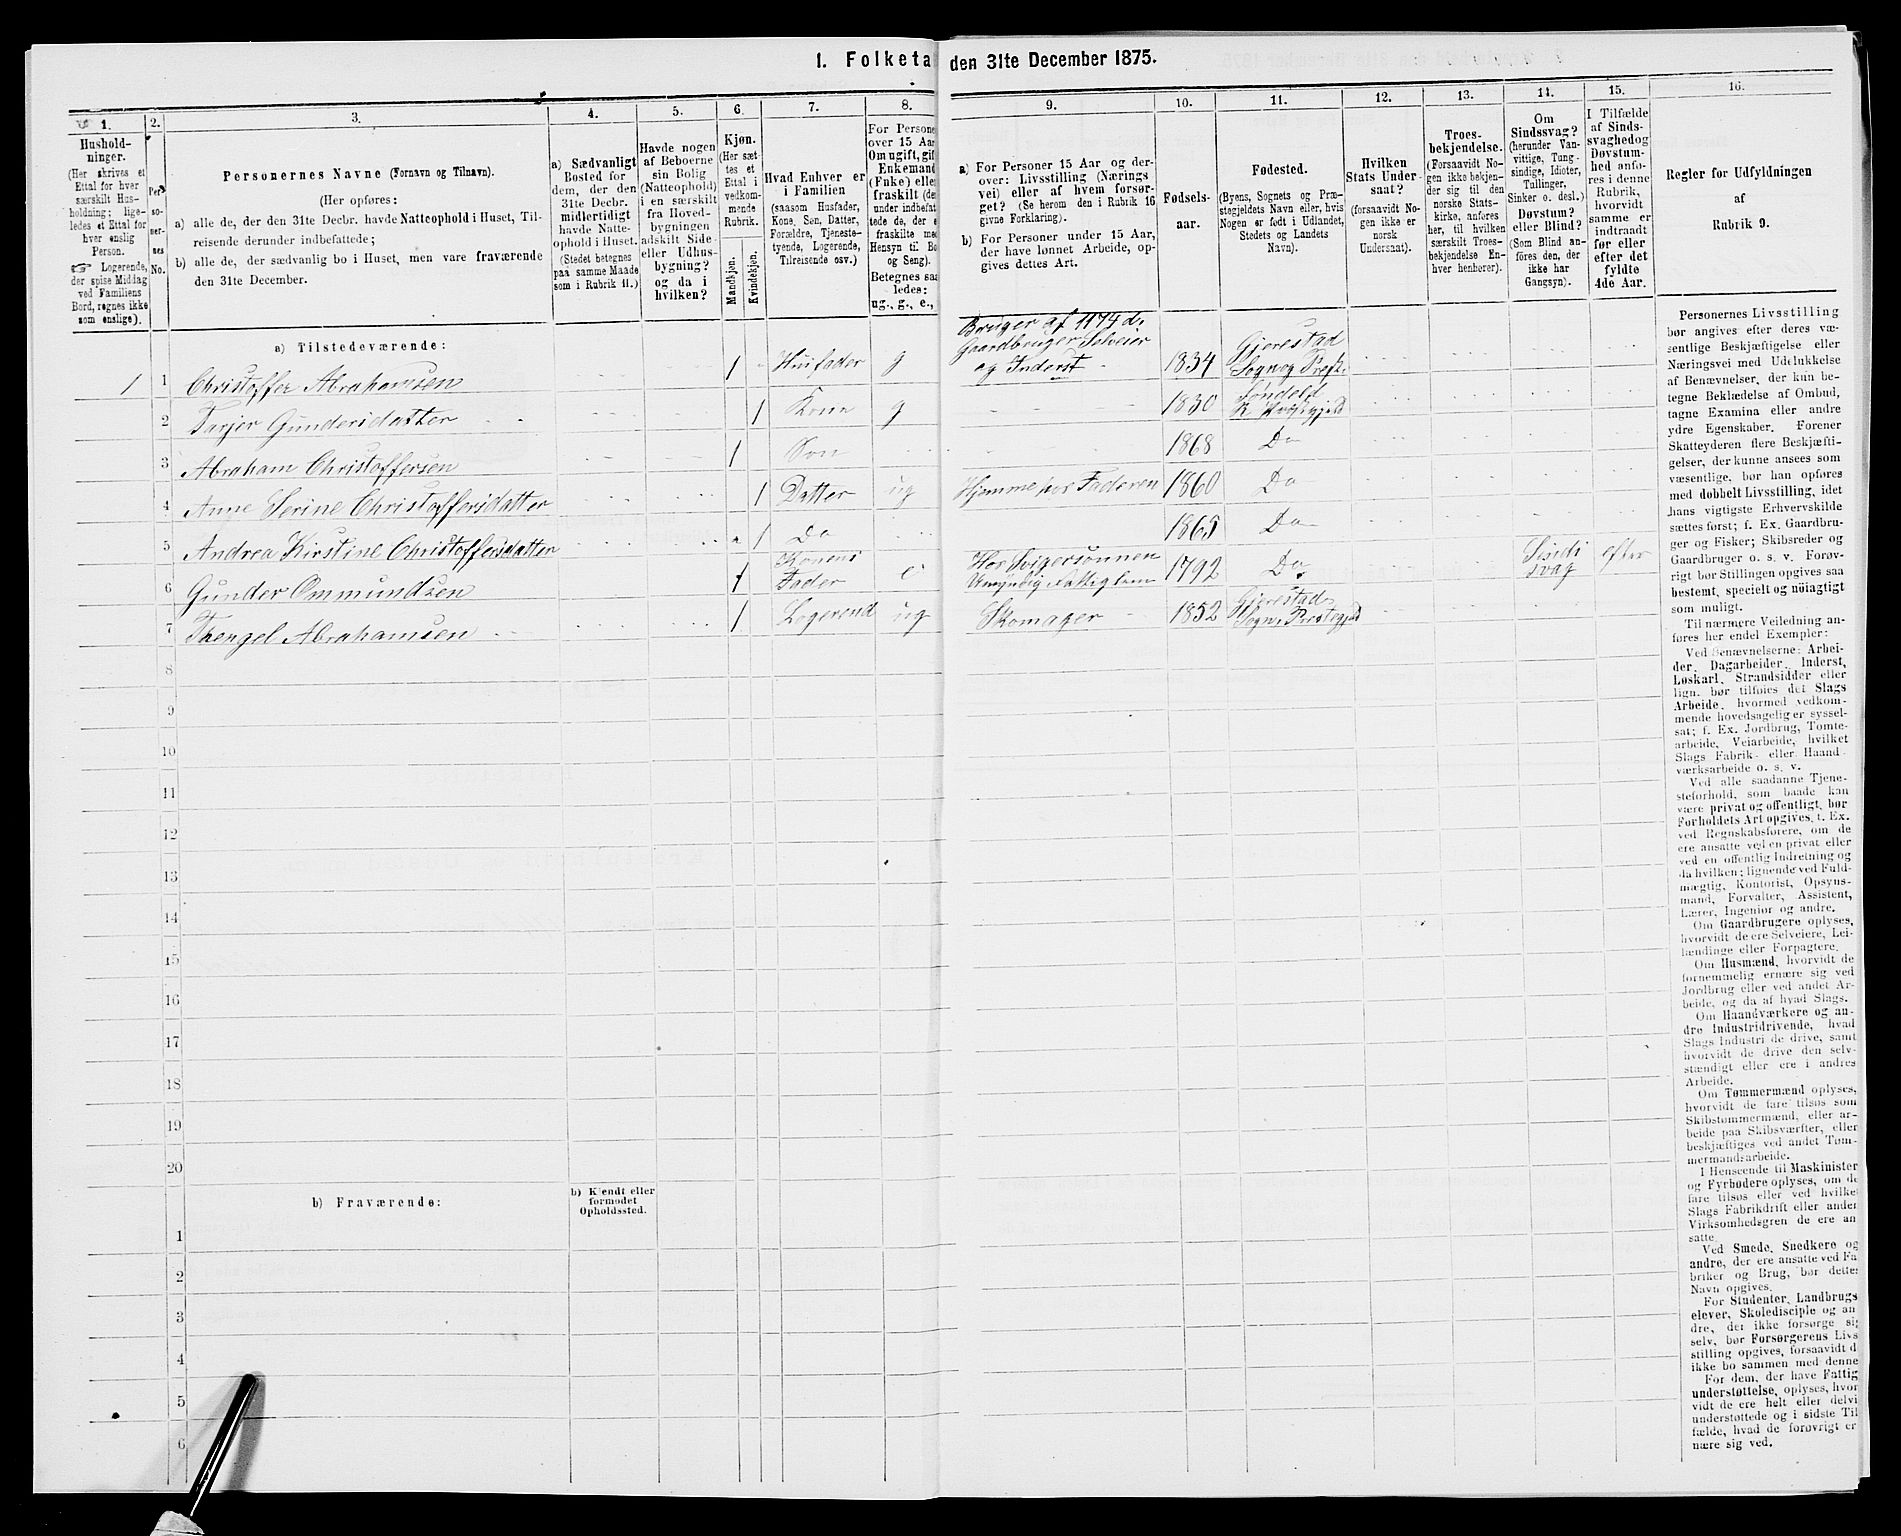 1. Folketa den 31te December 1875.
1.
Hushold-
ninger.
(Her skrives et
Ettal for hver
særskilt Hus-
holdning; lige-
ledes et Ettal for
hver enslig
Person.
☞ Logerende,
der spise Middag
ved Familiens
Bord, regnes ikke
som enslige).
2.
Per
so-
ner-
nes
No.
3.
Personernes Navne (Fornavn og Tilnavn).
(Her opføres:
a) alle de, der den 31te Decbr. havde Natteophold i Huset, Til-
reisende derunder indbefattede;
b) alle de, der sædvanlig bo i Huset, men vare fraværende
den 31te December.
4.
a) Sædvanligt
Bosted for
dem, der den
31te Decbr.
midlertidigt
havde Natte-
ophold i Huset.
(Stedet betegnes
paa samme Maade
som i Rubrik 11.)
5.
Havde nogen
af Beboerne
sin Bolig
(Natteophold)
i en særskilt
fra Hoved-
bygningen
adskilt Side-
eller Udhus-
bygning?
og da i
hvilken?
6.
Kjøn.
(Her sæt-
tes et
Ettal i
vedkom-
mende
Rubrik.
Mandkjøn.
Kvindekjøn.
7.
Hvad Enhver er
i Familien
(saasom Husfader,
Kone, Søn, Datter,
Forældre, Tjeneste-
tyende, Logerende,
Tilreisende osv.)
8.
For Persone
over 15 Aar
Om ugift, gift
Enkemand
(Enke) eller
fraskilt (de
under indbefat
tede de, der e
fraskilte med
Hensyn til Bo
og Seng).
Betegnes saa
ledes:
ug., g., e.,
9.
a) For Personer 15 Aar og der-
over: Livsstilling (Nærings
vei) eller af hvem forsør-
get? (Se herom den i Rubrik 16
givne Forklaring).
b) For Personer under 15 Aar,
der have lønnet Arbeide, op-
gives dettes Art.
10.
Fødsels-
aar.
11.
Fødested.
(Byens, Sognets og Præ-
stegjeldets Navn eller, hvis
Nogen er født i Udlandet,
Stedets og Landets
Navn).
12.
Hvilken
Stats Under-
saat?
(forsaavidt No-
gen ikke er
norsk
Undersaat).
13.
Troes-
bekjendelse.
(Forsaavidt No-
gen ikke bekjen-
der sig til den
norske Stats-
kirke, anføres
her, til hvilken
særskilt Troes-
bekjendelse En-
hver henhører).
14.
Om
Sindssvag?
(herunder Van-
vittige, Tung-
sindige, Idioter,
Tullinger,
Sinker o. desl.)
Døvstum?
eller Blind?
(Som Blind an-
føres den, der
ikke har
Gangsyn).
15.
I Tilfælde
af Sinds-
svaghed og
Døvstum-
hed anfø-
res i denne
Rubrik,
hvorvidt
samme er
indtraadt
før eller
efter det
fyldte
4de Aar.
16.
Regler for Udfyldningen
af
Rubrik 9.
a) Tilstedeværende:
Bruger af 1174 d.
Gaardbruger Selveier
1 1 Christoffer Abrahamsen 1 Husfader g og Inderst 1834 Gjerestad Sogn og Prestk.
2 Tarjer Gundersdatter 1 Kone g 1830 Søndeld K Præstgjeld
3 Abraham Christoffersen 1 Søn 1868 Do
4 Anne Serine Christoffersdatter 1 Datter ug Hjemme hos Faderen 1860 Do
5 Andrea Kirstine Christoffersdatter 1 Do 1865 Do
6 Gunder Ommundsen 1 Konens Fader e Hos Svigersønnen Umyndig Fattiglem 1792 Do Sinds svag efter
7 Thengel Abrahamsen 1 Logerend ug Skomager 1852 Gjerestads Sogn, Prestegjeld
8
9
10
11
12
13
14
15
16
17
18
19
20
b) Fraværende:
b) Kjendt eller
formodet
Opholdssted.
1
2
3
4
5
6
Personernes Livsstilling
bør angives efter deres væ-
sentlige Beskjæftigelse eller
Næringsvei med Udelukkelse
af Benævnelser, der kun be-
tegne Beklædelse af Ombud,
tagne Examina eller andre
ydre Egenskaber. Forener
Skatteyderen flere Beskjæfti-
gelser, der kunne ansees som
væsentlige, bør han opføres
med dobbelt Livsstilling, idet
hans vigtigste Erhvervskilde
sættes først; f. Ex. Gaardbru-
ger og Fisker; Skibsreder og
Gaardbruger o. s. v. Forøv-
rigt bør Stillingen opgives saa
bestemt, specielt og nöiagtigt
som muligt.
Til nærmere Veiledning an-
føres her endel Exempler:
Ved Benævnelserne: Arbei-
der, Dagarbeider, Inderst,
Løskarl, Strandsidder eller
lign. bør tilføies det Slags
Arbeide, hvormed vedkom-
mende hovedsagelig er syssel-
sat; f. Ex. Jordbrug, Tomte-
arbeide, Veiarbeide, hvilket
Slags Fabrik- eller Haand-
værksarbeide o. s. v.
Ved alle saadanne Tjene-
steforhold, som baade kan
være privat og offentligt, bør
Forholdets Art opgives, f. Ex.
ved Regnskabsførere, om de
ere ansatte ved en privat eller
ved en offentlig Indretning og
da hvilken; lignende ved Fuld-
mægtig, Kontorist, Opsyns-
mand, Forvalter, Assistent,
Lærer, Ingeniør og andre.
Om Gaardbrugere oplyses,
hvorvidt de ere Selveiere, Lei-
lændinge eller Forpagtere.
Om Husmænd, hvorvidt de
fornemmelig ernære sig ved
Jordbrug eller ved andet Ar-
beide, og da af hvad Slags.
Om Haandværkere og an-
dre Industridrivende, hvad
Slags Industri de drive, samt
hvorvidt de drive den selv-
stændigt eller ere i andres
Arbeide.
Om Tømmermænd oplyses,
hvorvidt de fare tilsøs som
Skibstømmermænd, eller ar-
beide paa Skibsværfter, eller
beskjæftiges ved andet Tøm-
mermandsarbeide.
I Henseende til Maskinister
og Fyrbødere oplyses, om de
fare tilsøs eller ved hvilket
Slags Fabrikdrift eller anden
Virksomhedsgren de ere an
satte.
Ved Smede, Snedkere og
andre, der ere ansatte ved Fa
briker og Brug, bør dettes
Navn opgives.
For Studenter, Landbrugs
elever, Skoledisciple og an
dre, der ikke forsørge sig
selv, bør Forsørgerens Livs
stilling opgives, forsaavidt de
ikke bo sammen med denne
For dem, der have Fattig
understøttelse, oplyses, hvor
vidt de ere helt eller delvi
understøttede og i sidste Til
fælde, hvad de forøvrigt er
nære sig ved.